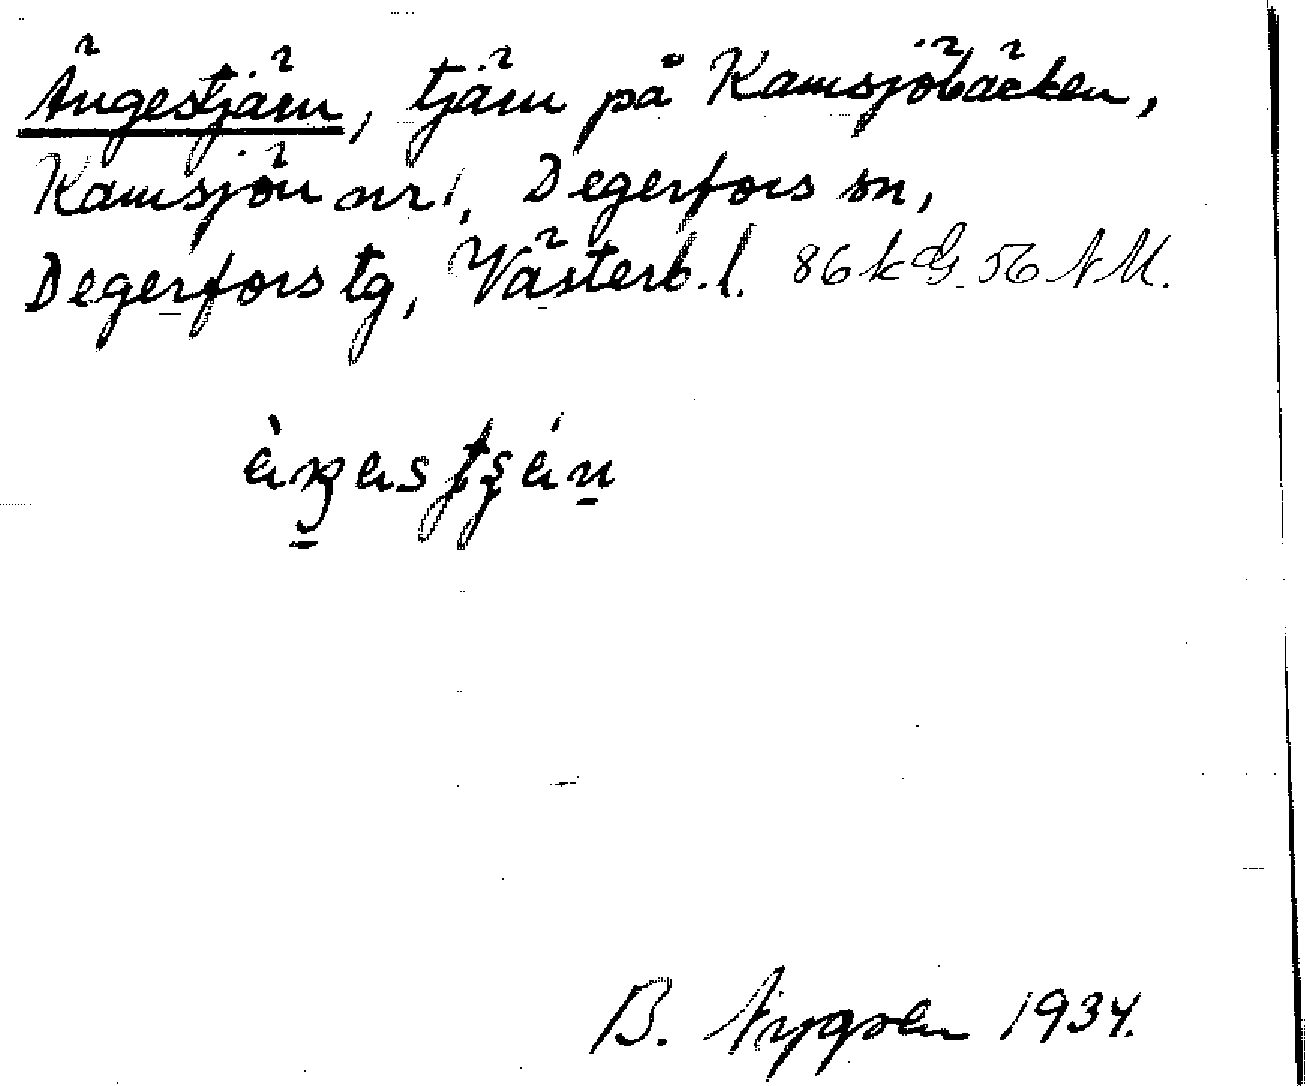 Ängestjärn, tjärn på Kamsjöbäcken,
Kamsjön nr 1, Degerfors sn,
Degerfors tg, Västerb. l. 86 k G. 56 N M.
B. Nygren 1934.